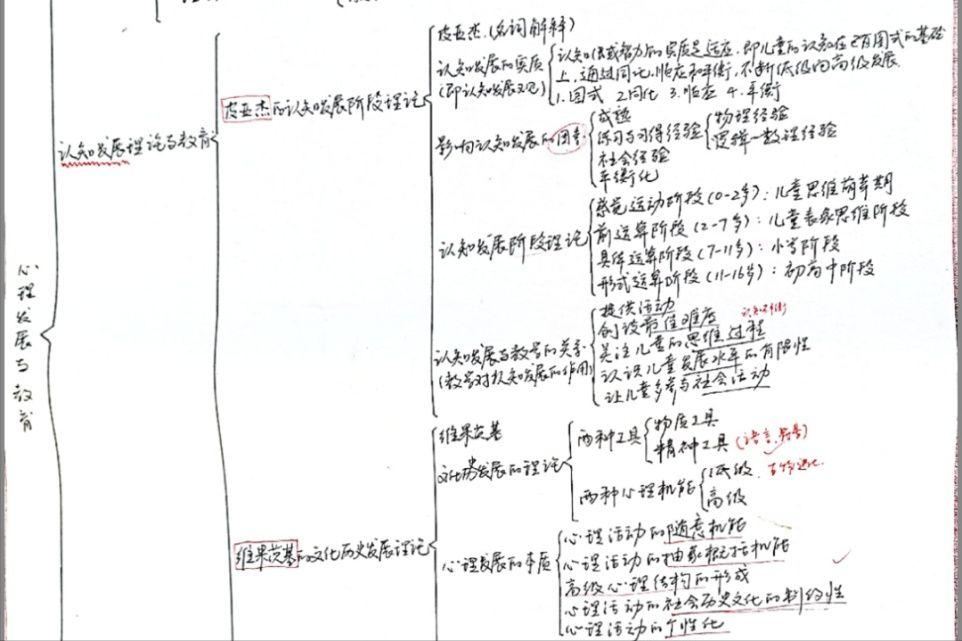 心理发展与教育
认知发展理论与教育
皮亚杰的认知发展阶段理论
皮亚杰(名词解释)
认知发展的实质
(即认知发展观)
认知(或智力)的实质是适应，即儿童的认知在已有图式的基础
上，通过同化、顺应和平衡，不断低级向高级发展.
1.图式 2.同化 3.顺应 4.平衡
影响认知发展的因素
成熟
练习与习得经验
物理经验
逻辑—数理经验
社会经验
平衡化
认知发展阶段理论
感觉运动阶段(0-2岁)：儿童思维萌芽期
前运算阶段(2-7岁)：儿童表象思维阶段
具体运算阶段(7-11岁)：小学阶段
形式运算阶段(11-16岁)：初高中阶段
认知发展与教学的关系
(教学对认知发展的作用)
提供活动
创设最佳难度
认知不平衡
关注儿童的思维过程
认识儿童发展水平的有限性
让儿童多参与社会活动
维果茨基的文化历史发展理论
维果茨基
文化历史发展的理论
两种工具
物质工具
精神工具(语言、符号)
两种心理机能
低级
高级
心理发展的本质
心理活动的随意机能
心理活动的抽象概括机能
高级心理结构的形成
心理活动的社会历史文化的制约性
心理活动的个性化